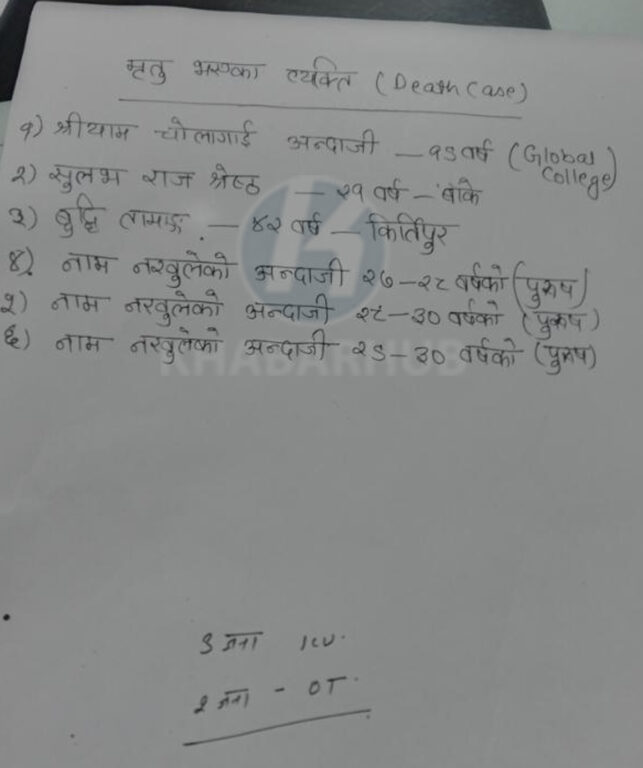 मृतु भएका व्यक्ति (Death Case)
१) श्रीयाम चोलागाई अन्दाजी – १९ वर्ष (Global College)
२) सुलभ राज श्रेष्ठ – २१ वर्ष – बाँके
३) बुद्धि तामाङ – ४२ वर्ष – किर्तिपुर
४) नाम नखुलेको अन्दाजी २७–२८ वर्षको (पुरुष)
५) नाम नखुलेको अन्दाजी २८–३० वर्षको (पुरुष)
६) नाम नखुलेको अन्दाजी २९–३० वर्षको (पुरुष)
KHABARHUB
३ जना ICU.
२ जना - OT.